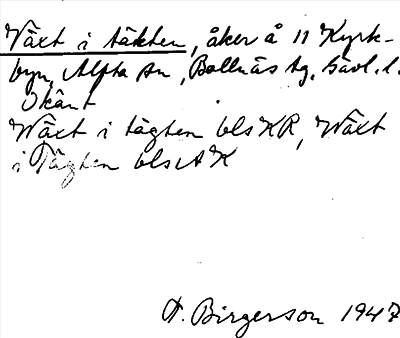 Växt i täkten, åker å 11 Kyrk-
byn, Alfta sn, Bollnäs tg, Gävl. l.
Okänt
Wäxt i tägten blsKR, Wäxt
i Tägten blsAK
F. Birgerson 1947